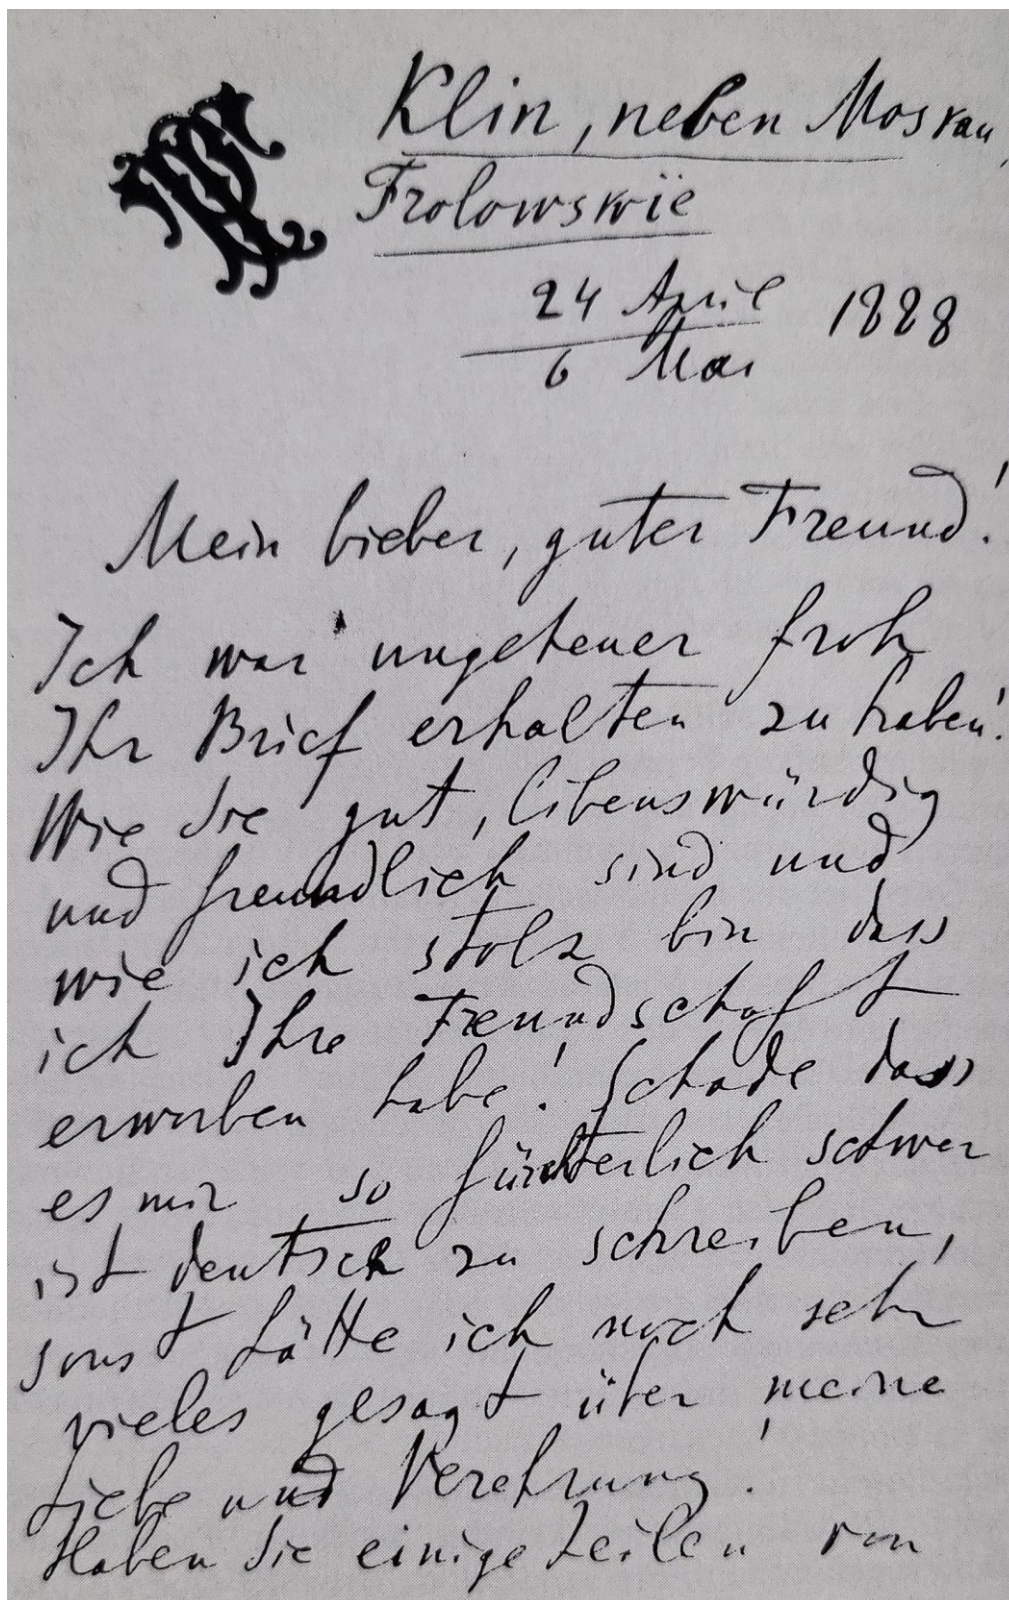 Klin, neben Moskau,
Frolowskoïe
24 April 1888
6 Mai
Mein lieber, guter Freund!
Ich war ungeheuer froh
Ihr Brief erhalten zu haben!
Wie Sie gut, libenswürdig
und freundlich sind und
wie ich stolz bin dass
ich Ihre Freundschaft
erworben habe! Schade dass
es mir so fürchterlich schwer
ist deutsch zu schreiben,
sonst hätte ich noch sehr
vieles gesagt über meine
Liebe und Verehrung!
Haben Sie einige Zeilen von